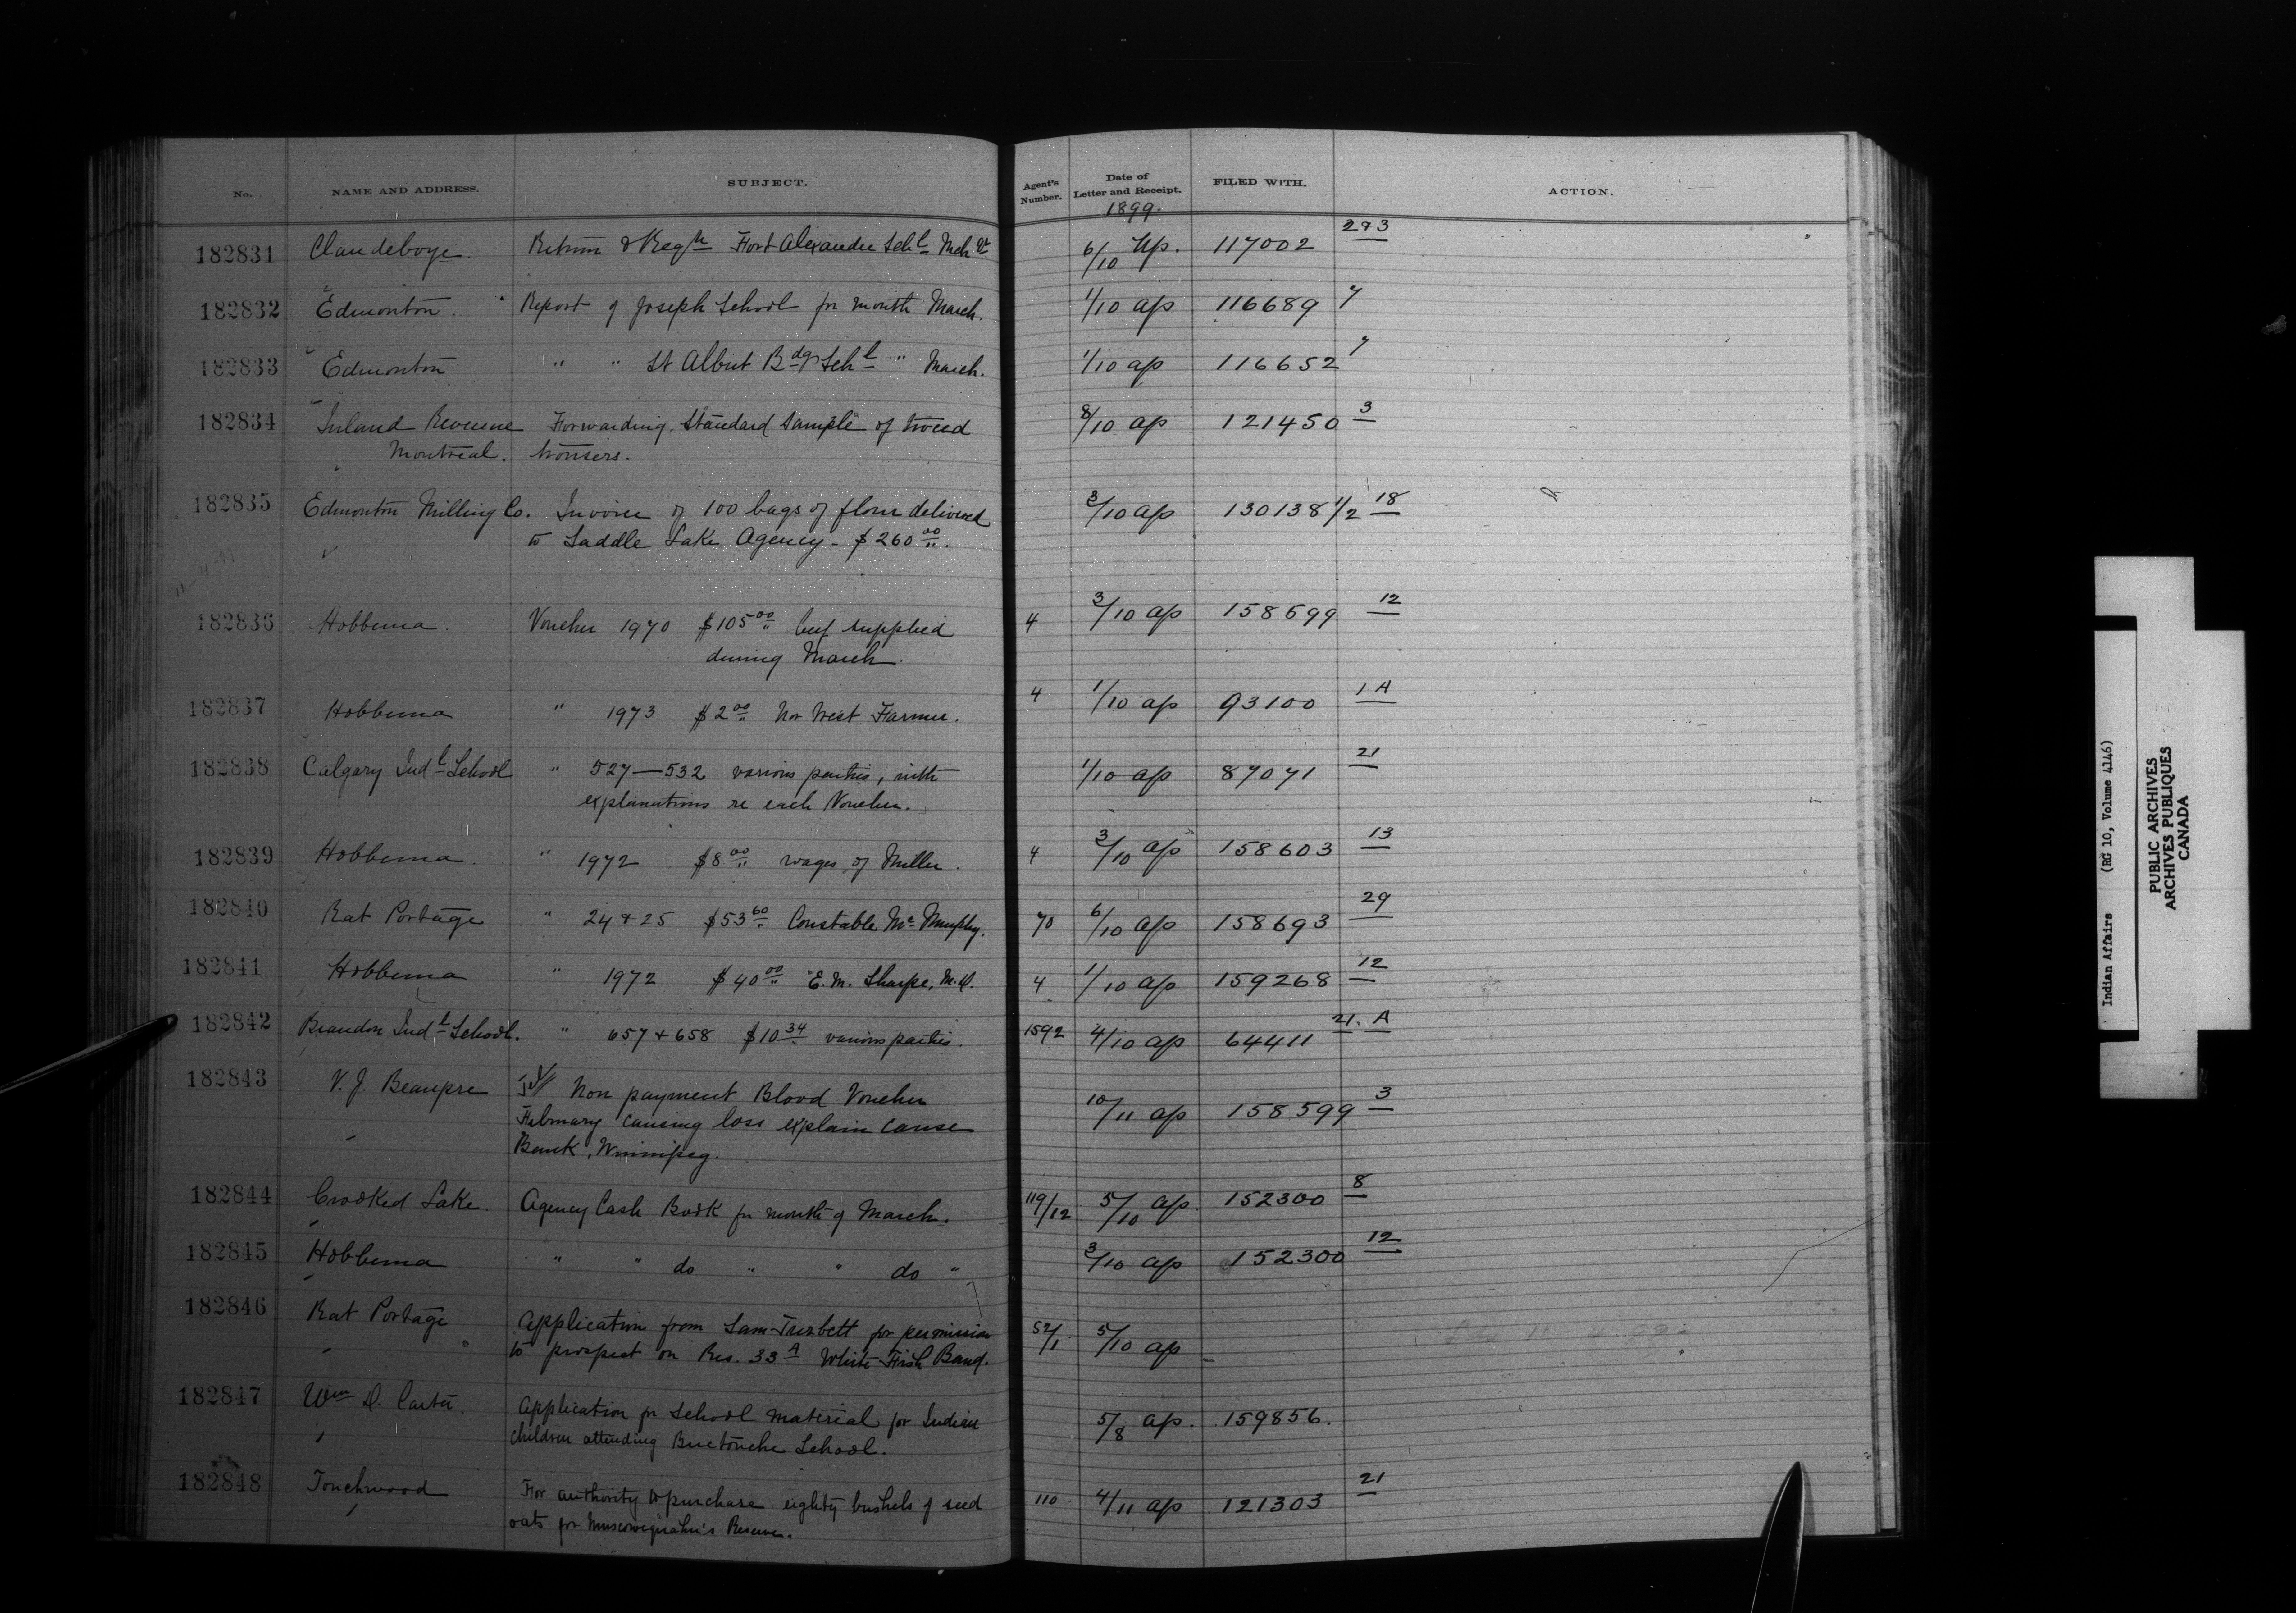 No. NAME AND ADDRESS. SUBJECT. Agent's Number. Date of Letter and Receipt. 1899. FILED WITH. ACTION.
182831 Clandeboye. Return & Regr Fort Alexander Schl Mch Qr 6/10 Ap. 117002 293
182832 Edmonton. Report of Joseph School for month March. 1/10 ap 116689 7
182833 Edmonton " " St Albert Bdg Schl " March. 1/10 ap 116652 7
182834 Inland Revenue Forwarding Standard Sample of tweed 8/10 ap 121450 3
Montreal. trousers.
182835 Edmonton Milling Co. Invoice of 100 bags of flour delivered 3/10 ap 130138 1/2 18
to Saddle Lake Agency - $260 00.
182836 Hobbema. Voucher 1970 $105 00 beef supplied 4 3/10 ap 158599 12
during March.
182837 Hobbema " 1973 $2 00 Nor West Farmer. 4 1/10 ap 93100 1A
182838 Calgary Indl School " 527—532 various parties, with 1/10 ap 87071 21
explanations re each Voucher.
182839 Hobbema. " 1972 $8 00 wages of Miller. 4 3/10 ap 158603 13
182840 Rat Portage " 24 & 25 $53 60 Constable Mc Murphy. 70 6/10 ap 158693 29
182841 Hobbema " 1972 $40 00 E.M. Sharpe, M.D. 4 1/10 ap 159268 12
182842 Brandon Indl School. " 657 & 658 $10 34 various parties. 1592 4/10 ap 64411 21. A
182843 V.J. Beaupre Non payment Blood Voucher
February causing loss explain cause 10/11 ap 158599 3
Bank, Winnipeg.
182844 Crooked Lake. Agency Cash Book for month of March. 119/12 5/10 ap. 152300 8
182845 Hobbema " " do " " do " 3/10 ap 152300 12
182846 Rat Portage Application from Sam for permission 52/1 5/10 ap
to prospect on Res. 33A White Fish Band.
182847 Wm D. Carter. Application for School material for Indian 5/8 ap. 159856.
children attending Buctouche School.
182848 Touchwood For authority to purchase eighty bushels of seed 110 4/11 ap 121303 21
oats for Muscowequahn's Reserve.
Indian Affairs (RG 10, Volume 4146)
PUBLIC ARCHIVES
ARCHIVES PUBLIQUES
CANADA